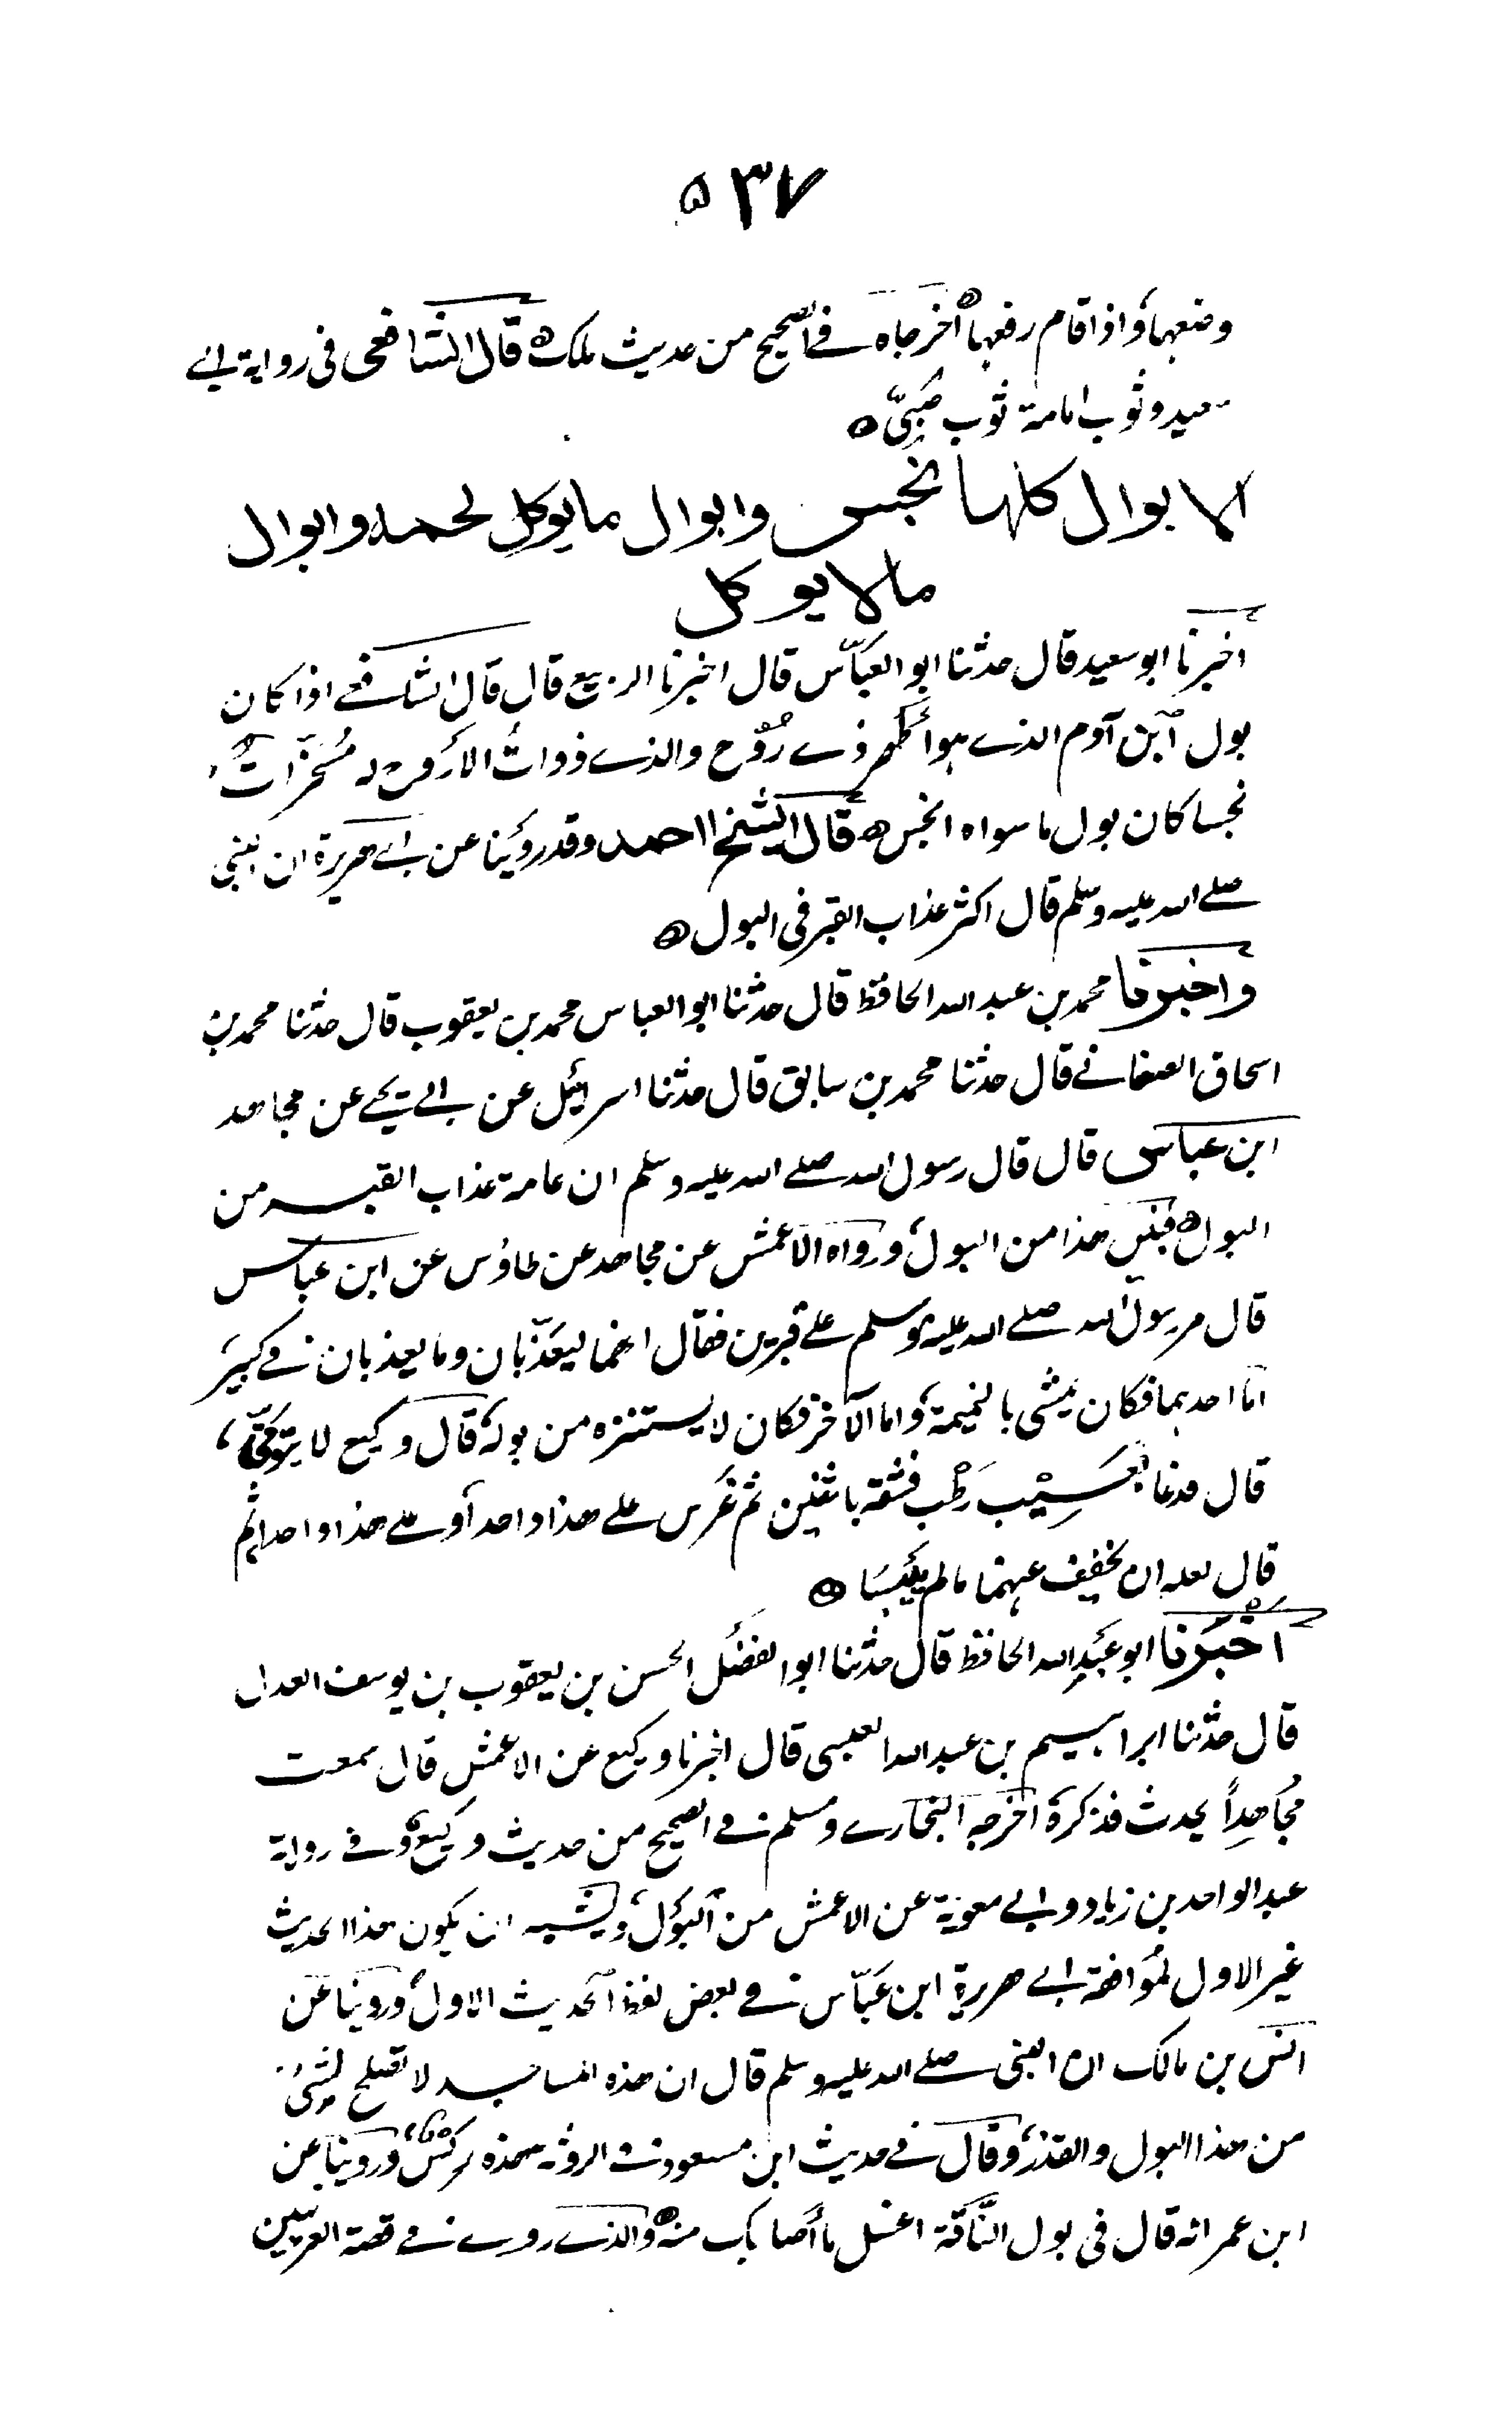 ٥٣٧
وضعها واذا قام رفعها اخرجاه في الصحيح من حديث ملك قال الشافعى فى رواية ابي
سعيد وثوب امامة ثوب صبىّ
الابوال كلها نجس وابوال مايوكل لحمه وابوال
مالا يوكل
اخبرنا ابو سعيد قال حدثنا ابو العباس قال اخبرنا الربيع قال قال الشافعي اذا كان
بول ابن آدم الذي هو اطهر ذي رُوْح والذي ذوات الارواح له مُسَخَّراتٌ
نجسا كان بول ما سواه انجس قال الشيخ احمد وقد روينا عن ابي هريرة ان النبى
صلى الله عليه وسلم قال اكثر عذاب القبر فى البول
واخبرنا محمد بن عبد الله الحافظ قال حدثنا ابو العباس محمد بن يعقوب قال حدثنا محمد بن
اسحاق الصغاني قال حدثنا محمد بن سابق قال حدثنا اسرائيل عن ابي يحيى عن مجاهد
ابن عباس قال قال رسول الله صلى الله عليه وسلم ان عامة عذاب القبر من
البول هذا من البول ورواه الاعمش عن مجاهد عن طاؤس عن ابن عباس
قال مر رسول الله صلى الله عليه وسلم على قبرين فقال انهما ليعذّبان وما يعذبان في كبير
اما احدهما فكان يمشى بالنميمة واما الآخر فكان لا يستنزه من بوله قال وكيع لا يتوقّى
قال فدعا بعَسِيْب رَطْب فشقه باثنين ثم غرس على هذا واحدا وعلى هذا واحدا ثم
قال لعله ان يخفف عنهما ما لم ييبسا
اخْبَرَنا ابو عبد الله الحافظ قال حدثنا ابو الفضل الحسن بن يعقوب بن يوسف العدل
قال حدثنا ابراهيم بن عبد الله العبسى قال اخبرنا وكيع عن الاعمش قال سمعت
مُجَاهِداً يحدث فذكره اخرجه البخاري ومسلم في الصحيح من حديث وكيع وفي رواية
عبد الواحد بن زياد وابي معوية عن الاعمش من البول ويشبه ان يكون هذا الحديث
غير الاول لموافقة ابي هريرة ابن عبّاس في بعض لفظ الحديث الاول وروينا عن
انس بن مالك ان النبى صلى الله عليه وسلم قال ان هذه المساجد لا تصلح لشئ
من هذا البول والقذر وقال في حديث ابن مسعود في الروثة هذه رِكْسٌ وروينا عن
ابن عمر انه قال فى بول النّاقة اغسل ما أصابك منه والذي روي في قصة العرنيين